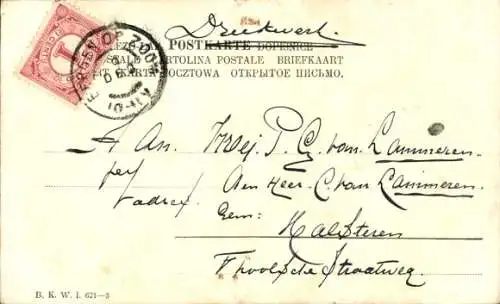 Drukwerk.
POSTKARTE DOPISNICE
CARTOLINA POSTALE BRIEFKAART
KARTA POCZTOWA ОТКРЫТОЕ ПИСЬМО.
BERGEN OP ZOOM
1
Aan Mej. P. C. van Lammeren.
per Den Heer C. van Lammeren.
adres
Gem:
Halsteren
Thoolsche Straatweg.
B. K. W. I. 621—3